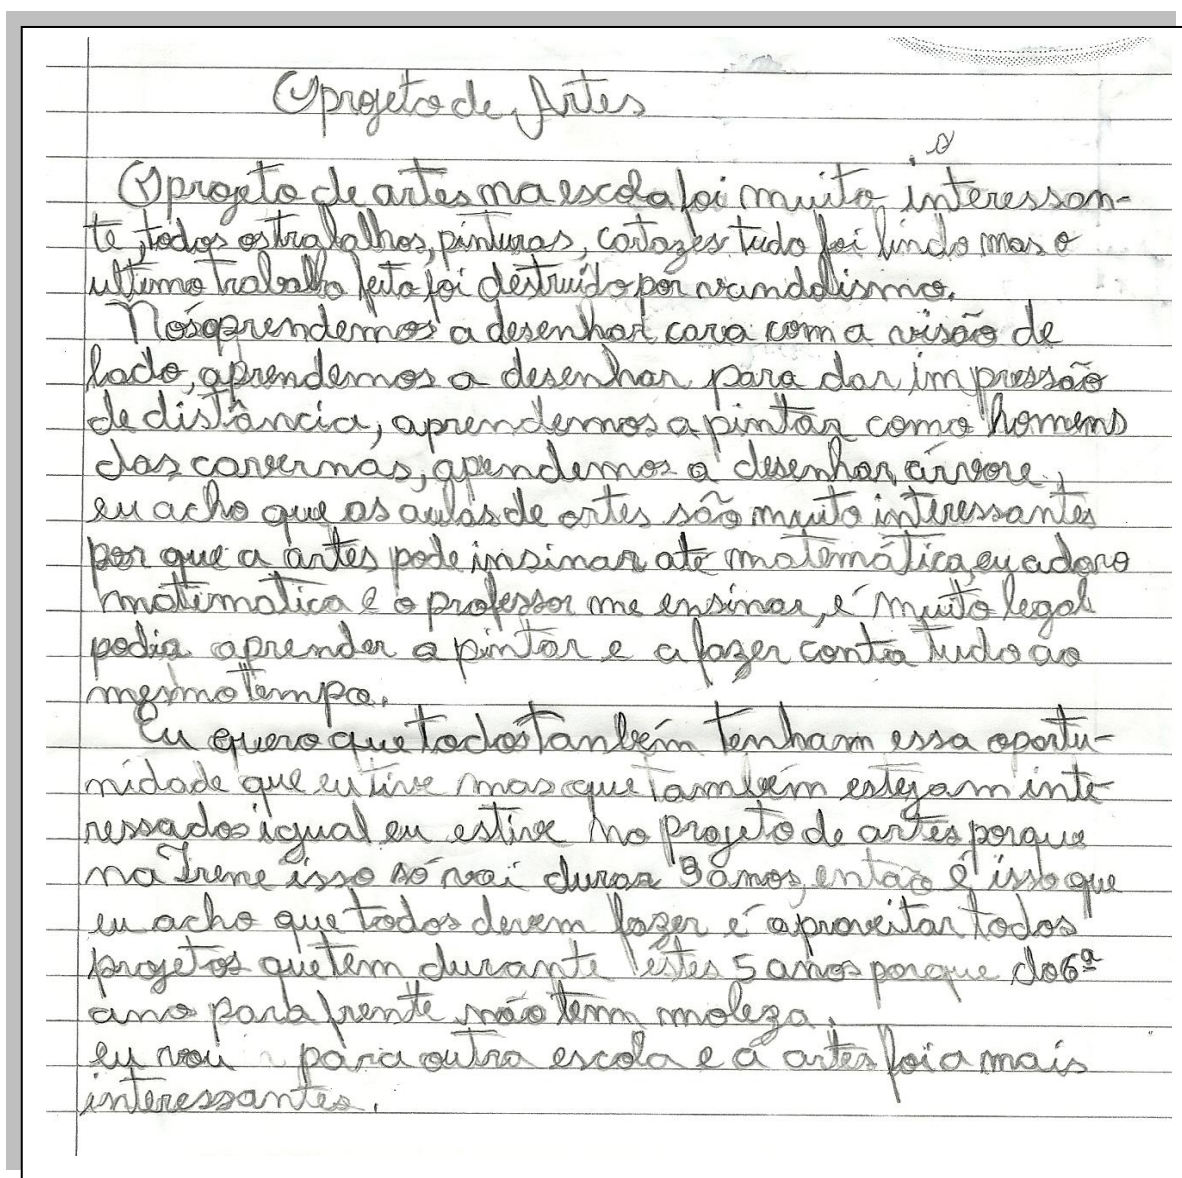 O projeto de Artes
O projeto de artes na escola foi muito interessan-
te, todos os trabalhos, pinturas, cartazes tudo foi lindo mas o
ultimo trabalho feito foi destruído por vandalismo.
Nós aprendemos a desenhar cara com a visão de
lado, aprendemos a desenhar para dar impressão
de distância, aprendemos a pintar como homens
das cavernas, apendemos a desenhar árvore,
eu acho que as aulas de artes são muito interessantes
por que a artes pode insinar até matemática, eu adoro
matimatica e o professor me ensinar, é muito legal
podia aprender a pintar e a fazer conta tudo ao
mesmo tempo.
Eu quero que todos tanbém tenham essa oportu-
nidade que eu tive mas que também estejam inte
ressados igual eu estive no projeto de artes porque
na Irene isso só vai durar anos, então é isso que
eu acho que todos devem fazer é aproveitar todos
projetos que tem durante estes 5 anos porque do 6ª
ano para frente não tem moleza.
eu vou para outra escola e a artes foi a mais
interessantes.